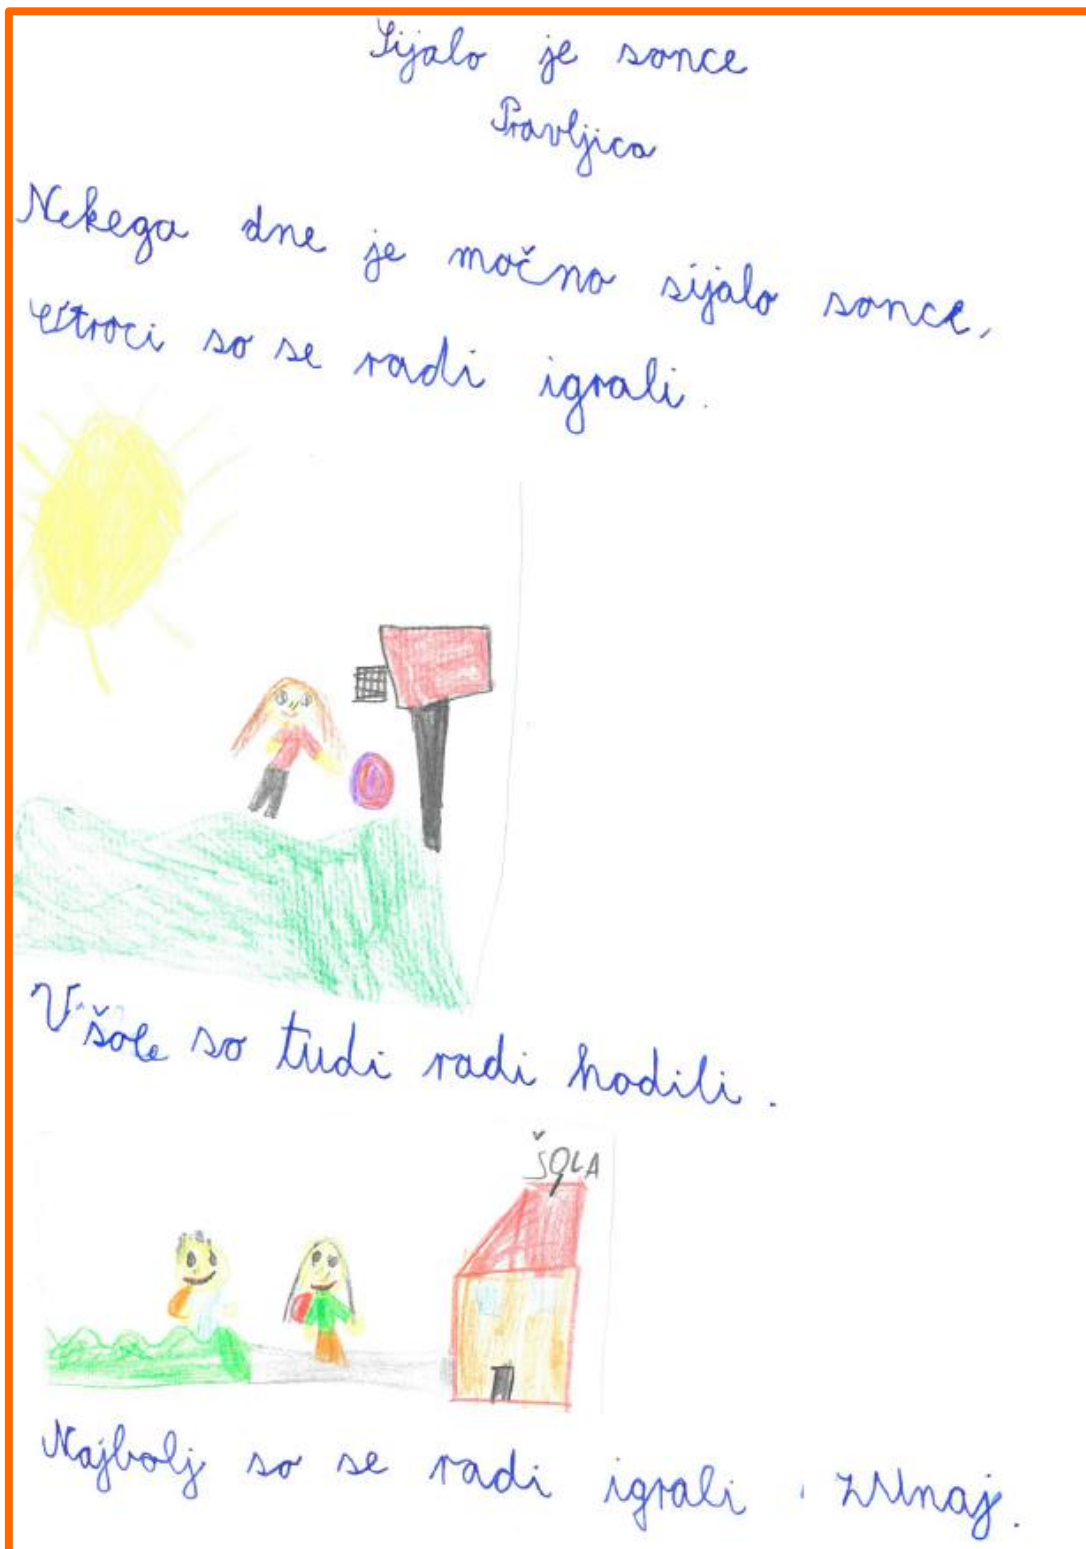 Sijalo je sonce
Pravljica
Nekega dne je močno sijalo sonce,
otroci so se radi igrali.
V šole so tudi radi hodili.
ŠOLA
Najbolj so se radi igrali zunaj.